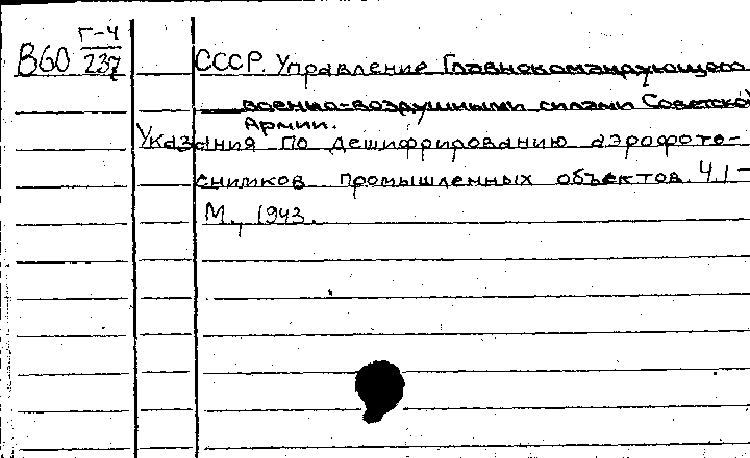 В60 Г-4/237
СССР. Управление Главнокомандующего
военно-воздушными силами Советской
Армии.
Указания по дешифрированию аэрофото-
снимков промышленных объектов. Ч.1-
М., 1943.